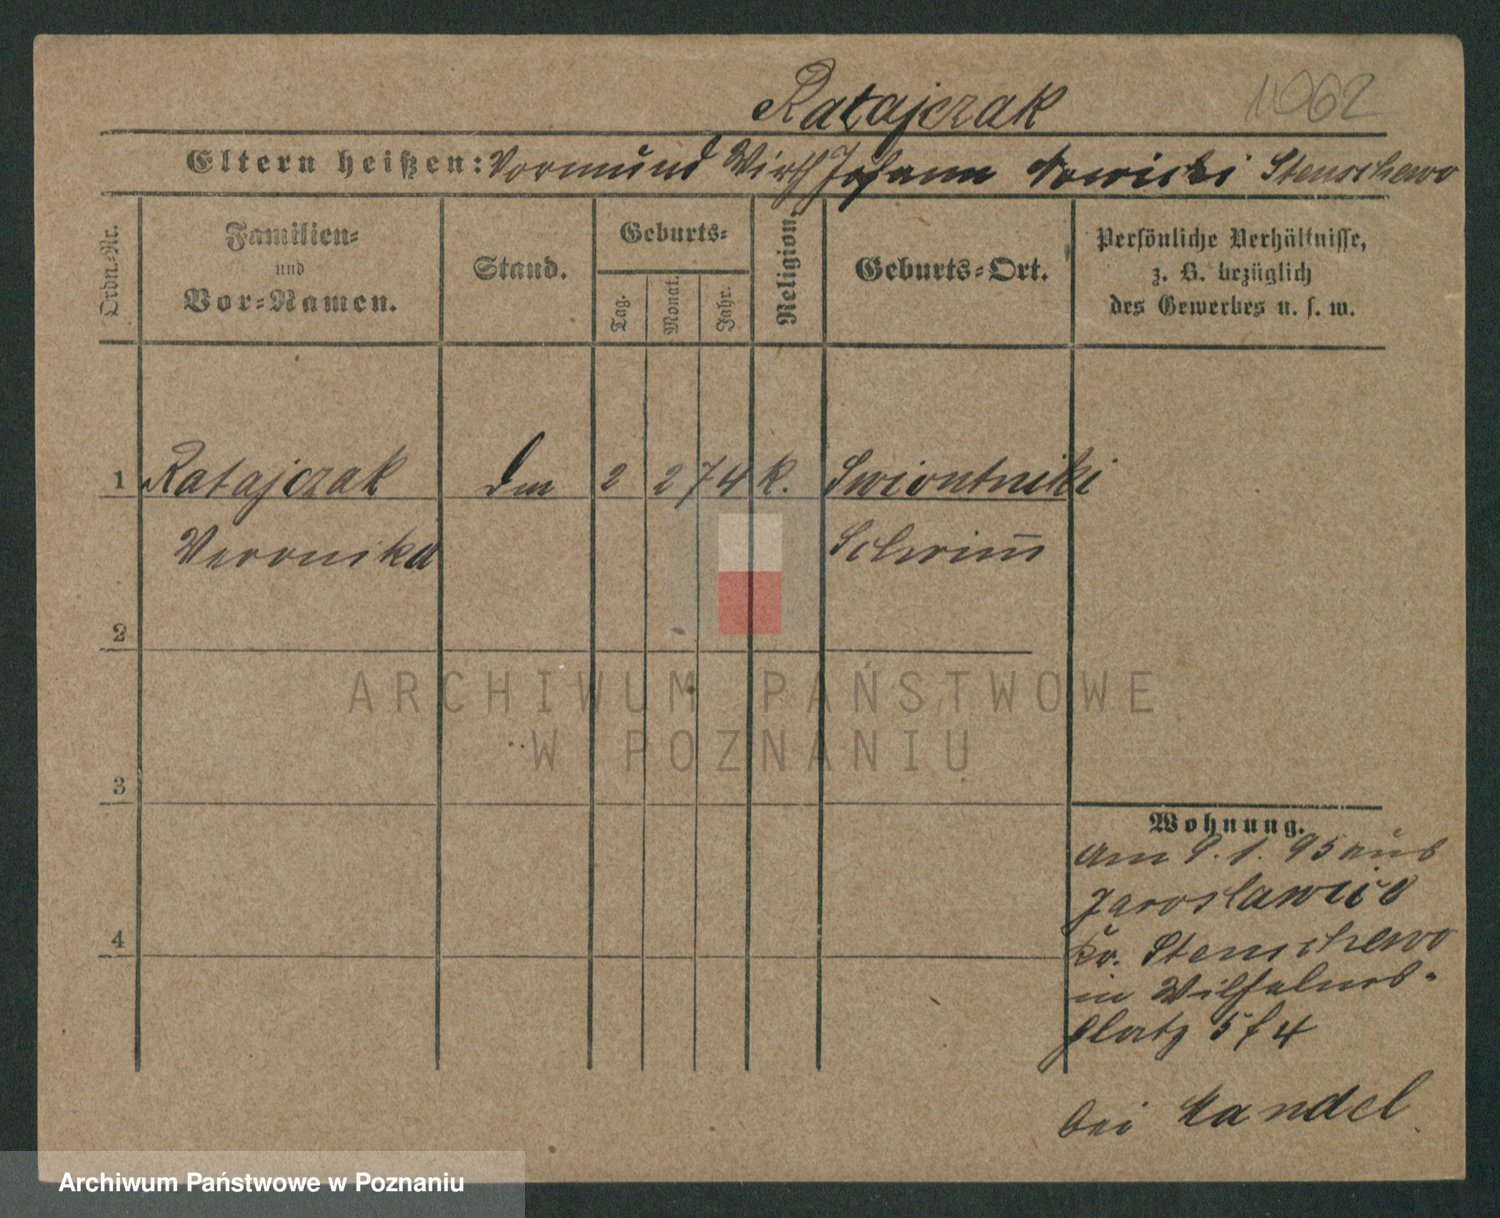 Ratajczak 1062
Eltern heißen: Vormund Wirth Johann Nowicki Stenschewo
Ordn.-Nr.
Familien-
und
Vor-Namen.
Stand.
Geburts-
Tag.
Monat.
Jahr.
Religion.
Geburts-Ort.
Persönliche Verhältnisse,
z. B. bezüglich
des Gewerbes u. s. w.
1 Ratajczak 2 2 74 k. Swiontniki
Veronika Schrimm
2
3
4
Wohnung.
am 9. 1. 95 aus
Jaroslawiec
Kr. Stenschewo
in Wilhelms-
platz 5 f 4
bei Mandel
ARCHIWUM PAŃSTWOWE
W POZNANIU
Archiwum Państwowe w Poznaniu